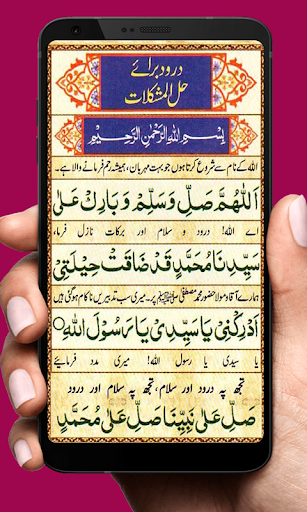 درود برائے
حل المشکلات
بِسْمِ اللّٰهِ الرَّحْمٰنِ الرَّحِيْمِ
اللہ کے نام سے شروع کرتا ہوں جو بہت مہربان، ہمیشہ رحم فرمانے والا ہے
اَللّٰهُمَّ صَلِّ وَسَلِّمْ وَبَارِكْ عَلٰى
اے اللہ! درود و سلام اور برکات نازل فرما
سَيِّدِنَا مُحَمَّدٍ قَدْ ضَاقَتْ حِيْلَتِيْ
ہمارے آقا و مولا حضور محمد مصطفیٰ ﷺ پر، میری سب تدبیریں ناکام ہو گئیں ہیں
اَدْرِكْنِيْ يَا سَيِّدِيْ يَا رَسُوْلَ اللّٰهِ
یا سیدی یا رسول اللہ! میری مدد فرمائیے
تجھ پہ درود اور سلام، تجھ پہ سلام اور درود
صَلِّ عَلٰى نَبِيِّنَا صَلِّ عَلٰى مُحَمَّدٍ